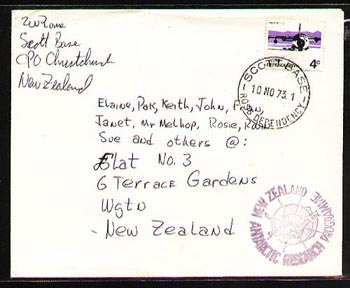 Scott Base
CPO Christchurch
New Zealand
4c
SCOTT BASE
10 NO 73.1
ROSS DEPENDENCY
Elaine, Pat, Keith, John,
Janet, Mr Melhop, Rosie,
Sue and others @:
Flat No. 3
6 Terrace Gardens
Wgtn
New Zealand
NEW ZEALAND
ANTARCTIC RESEARCH PROGRAMME